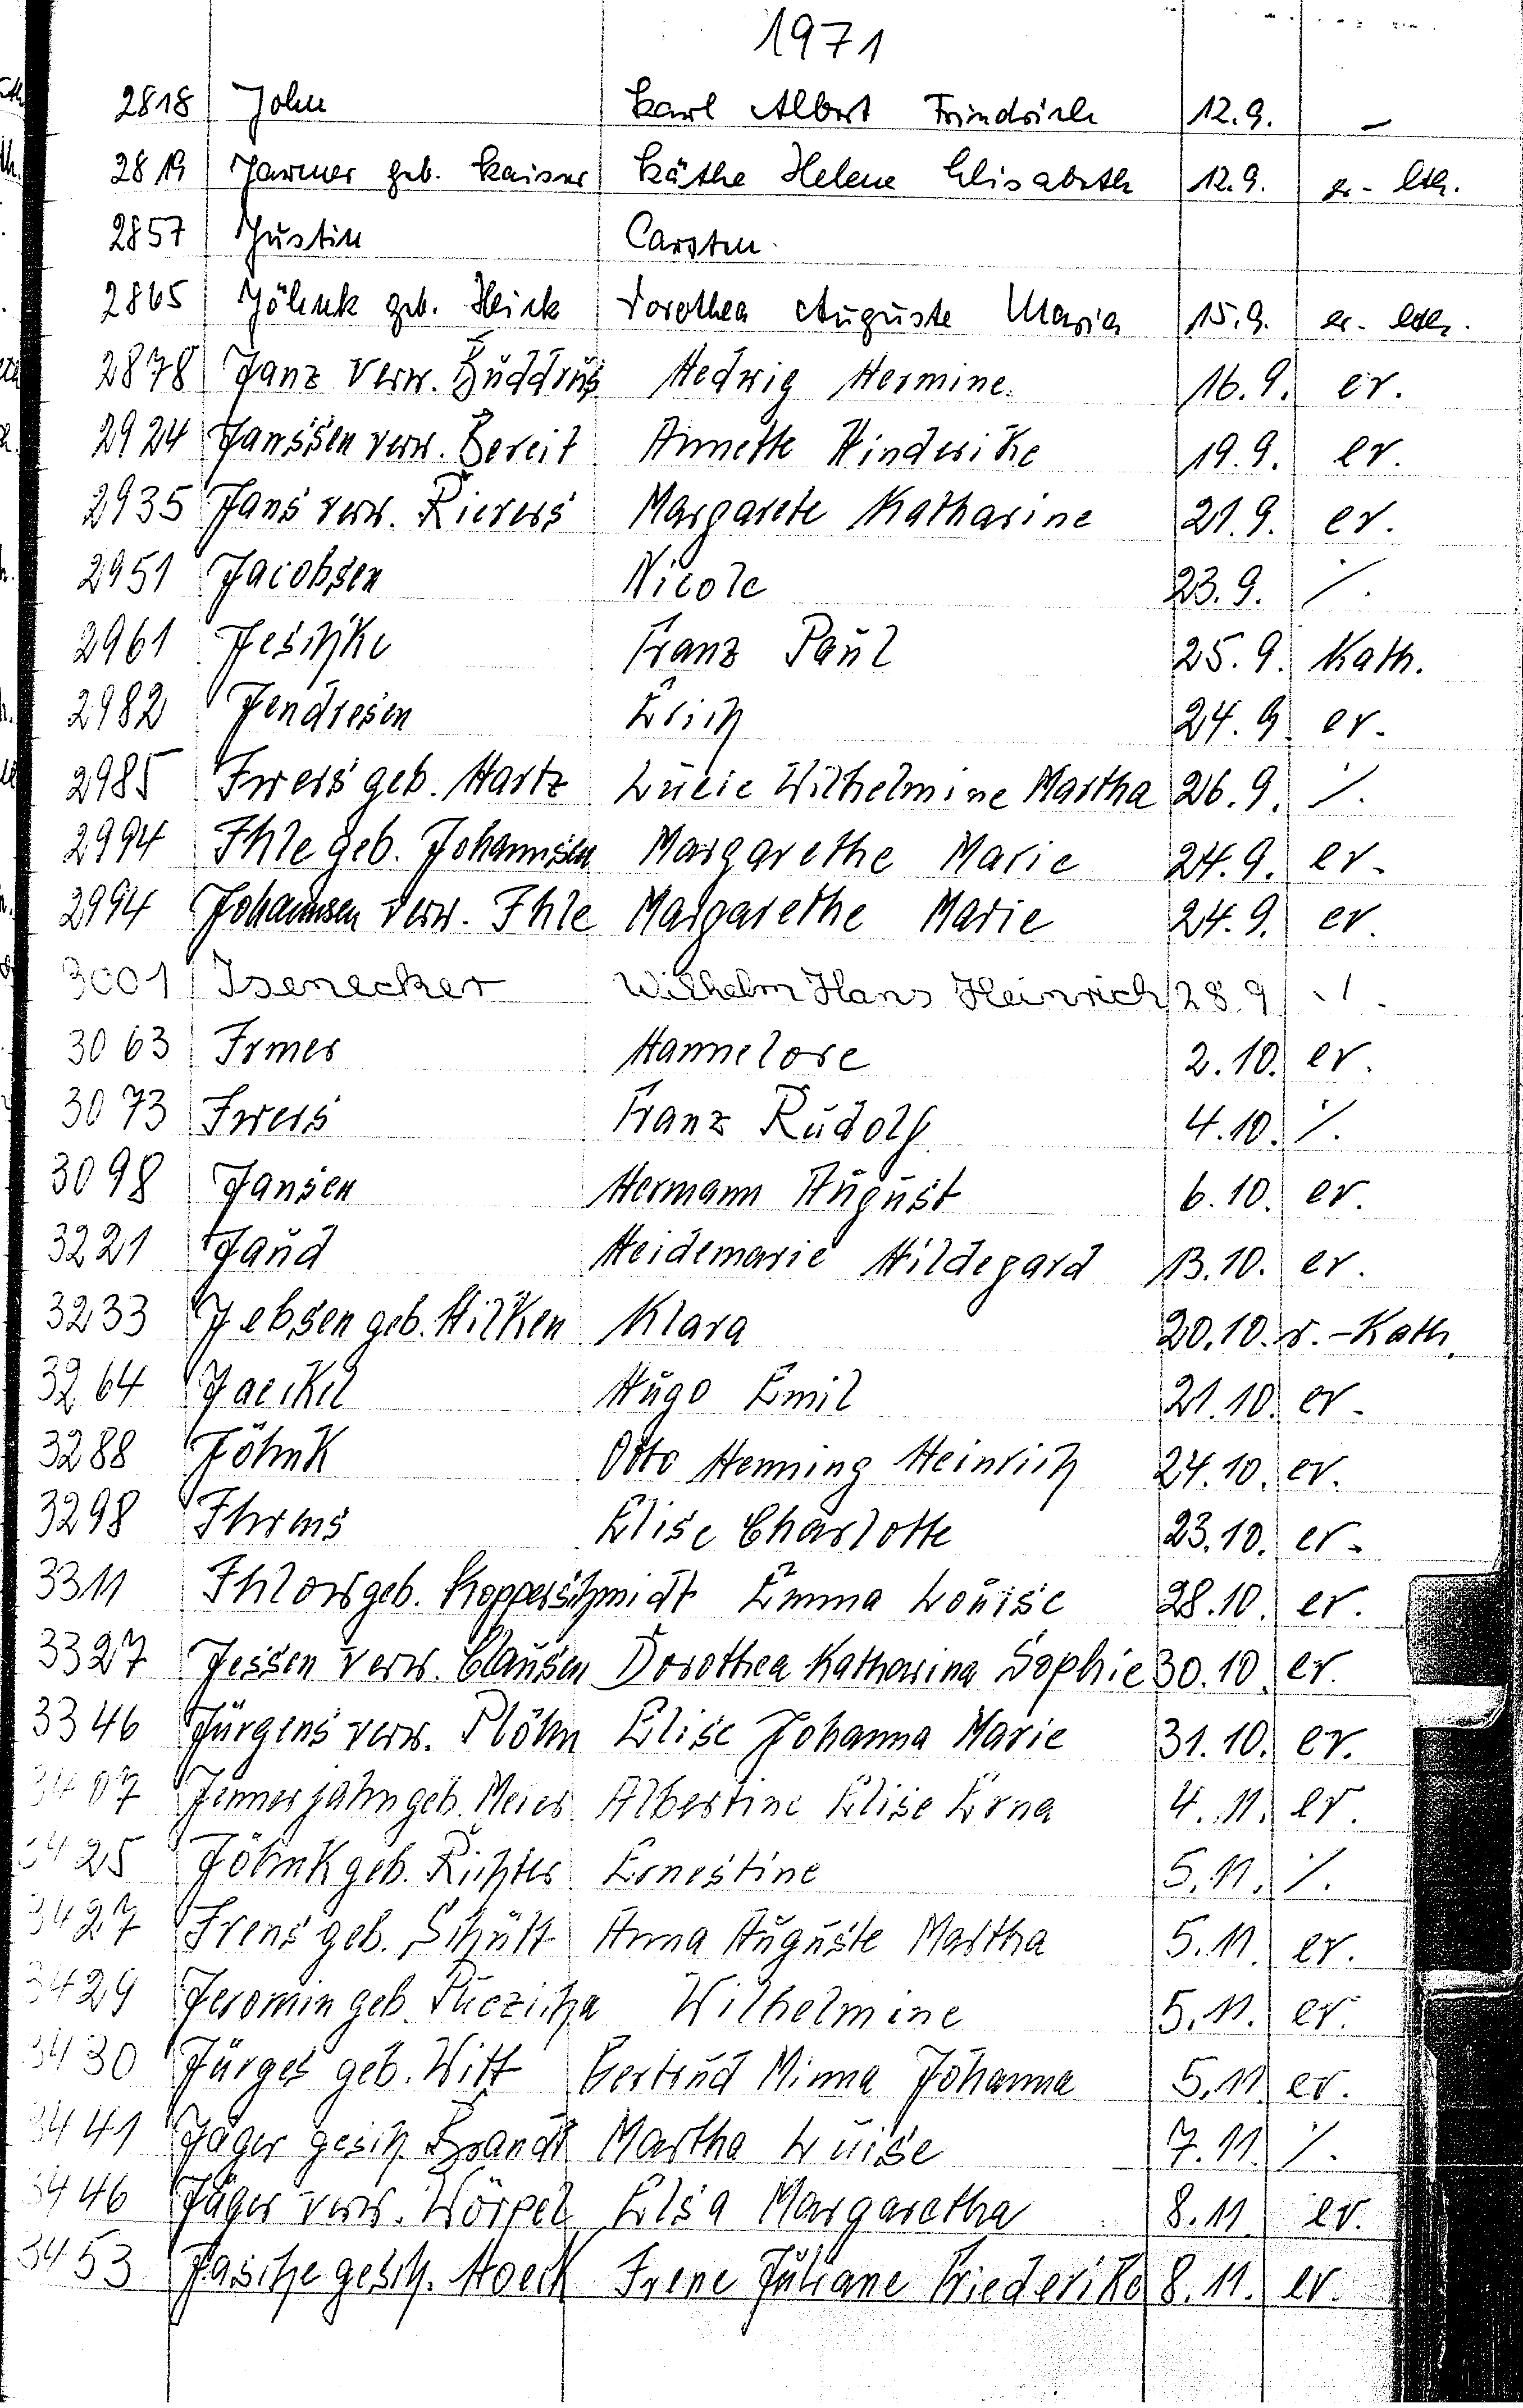 1971
2818 John Karl Albert Friedrich 12.9. –
2819 Jarmer geb. Kaiser Käthe Helene Elisabeth 12.9. ev.-lth.
2857 Justin Carsten
2865 Jöhnk geb. Heick Dorothea Auguste Maria 15.9. ev.-lth.
2878 Janz verw. Buddrus Hedwig Hermine 16.9. ev.
2924 Janssen verw. Bereit Annette Hinderike 19.9. ev.
2935 Jans verw. Rievers Margarete Katharine 21.9. ev.
2951 Jacobsen Nicole 23.9. ·/.
2961 Jeschke Franz Paul 25.9. Kath.
2982 Jendresen Erich 24.9. ev.
2985 Iwers geb. Hartz Lucie Wilhelmine Martha 26.9. ·/.
2994 Ihle geb. Johannsen Margarethe Marie 24.9. ev.
2994 Johannsen verw. Ihle Margarethe Marie 24.9. ev.
3001 Isenecker Wilhelm Hans Heinrich 28.9 ·/.
3063 Irmer Hannelore 2.10. ev.
3073 Iwers Franz Rudolf 4.10. ·/.
3098 Jansen Hermann August 6.10. ev.
3221 Jaud Heidemarie Hildegard 13.10. ev.
3233 Jebsen geb. Hilken Klara 20.10. r.-Kath.
3264 Jaeckel Hugo Emil 21.10. ev.
3288 Jöhnk Otto Henning Heinrich 24.10. ev.
3298 Ihrens Elise Charlotte 23.10. ev.
3311 Ihlow geb. Kopperschmidt Emma Louise 28.10. ev.
3327 Jessen verw. Clausen Dorothea Katharina Sophie 30.10. ev.
3346 Jürgens verw. Plöhn Elise Johanna Marie 31.10. ev.
3407 Jennerjahn geb. Meier Albertine Elise Erna 4.11. ev.
3425 Jöhnk geb. Richter Ernestine 5.11. ·/.
3427 Irens geb. Schütt Anna Auguste Martha 5.11. ev.
3429 Jeromin geb. Puczicha Wilhelmine 5.11. ev.
3430 Jürges geb. Witt Gertrud Minna Johanna 5.11. ev.
3441 Jäger gesch. Brandt Martha Luise 7.11. ·/.
3446 Jäger verw. Wörpel Elsa Margaretha 8.11. ev.
3453 Jasche gesch. Hoeck Irene Juliane Friederike 8.11. ev.